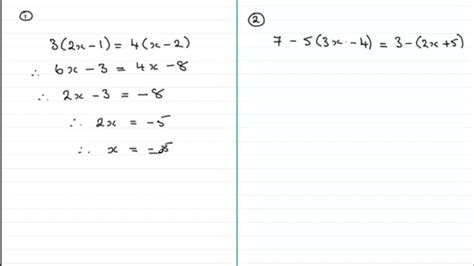 ①
3(2x-1) = 4(x-2)
∴ 6x - 3 = 4x - 8
∴ 2x - 3 = -8
∴ 2x = -5
∴ x =
②
7 - 5(3x - 4) = 3 - (2x + 5)